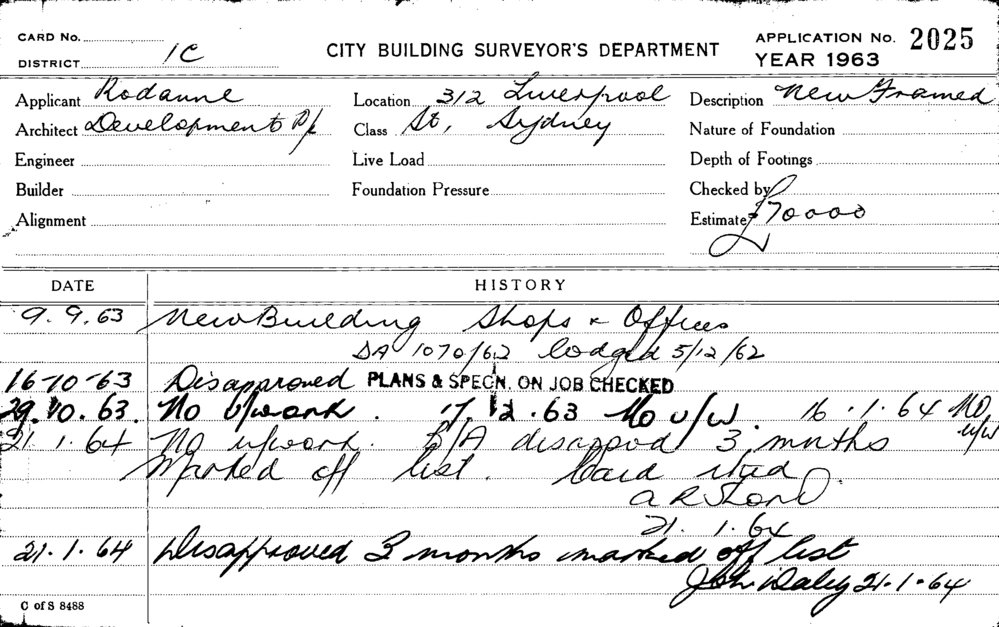 CARD No.
DISTRICT 1C
CITY BUILDING SURVEYOR'S DEPARTMENT
APPLICATION No. 2025
YEAR 1963
Applicant Rodanne
Architect Development P/L
Engineer
Builder
Alignment
Location 312 Liverpool
Class St, Sydney
Live Load
Foundation Pressure
Description New Framed
Nature of Foundation
Depth of Footings
Checked by
Estimate £70000
DATE HISTORY
9.9.63 New Building Shops & Offices
DA 1070/62 lodged 5/12/62
16-10-63 Disapproved PLANS & SPECN. ON JOB CHECKED
29.10.63. No u/work. 17.12.63 No u/w. 16.1.64 No u/w
21.1.64 No u/work. B/A disappvd 3 months
Marked off list. Card
A R
21.1.64
21.1.64 Disapproved 3 months marked off list
John Daley 21.1.64
C of S 8488